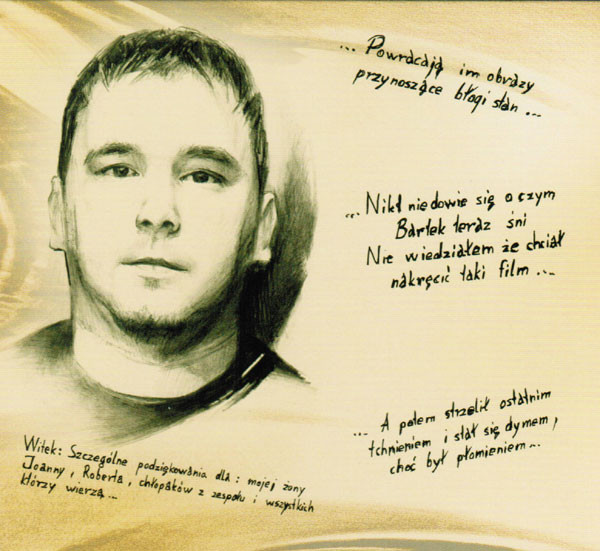 ... Powracają im obrazy
przynoszące błogi stan ...
... Nikt nie dowie się o czym
Bartek teraz śni
Nie wiedziałem że chciał
nakręcić taki film ...
... A potem strzelił ostatnim
tchnieniem i stał się dymem,
choć był płomieniem...
Witek: Szczególne podziękowania dla: mojej żony
Joanny, Roberta, chłopaków z zespołu i wszystkich
którzy wierzą...